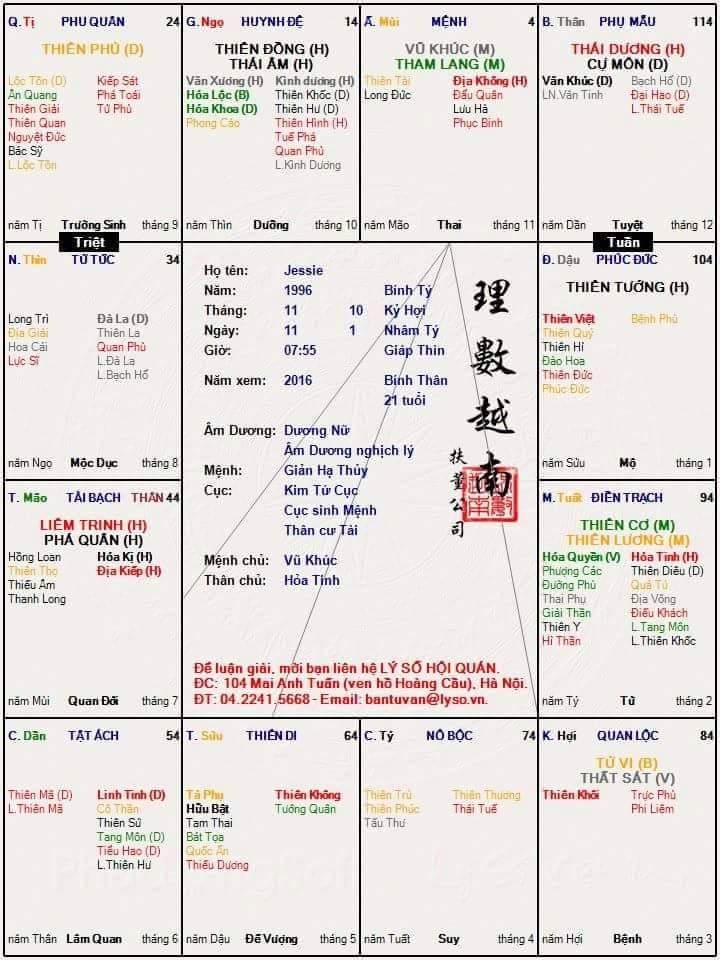 Q. Tị PHU QUÂN 24
THIÊN PHỦ (D)
Lộc Tồn (D) Kiếp Sát
Ân Quang Phá Toái
Thiên Giải Tử Phù
Thiên Quan
Nguyệt Đức
Bác Sỹ
L.Lộc Tồn
năm Tị Trường Sinh tháng 9
G. Ngọ HUYNH ĐỆ 14
THIÊN ĐỒNG (H)
THÁI ÂM (H)
Văn Xương (H) Kình dương (H)
Hóa Lộc (B) Thiên Khốc (D)
Hóa Khoa (D) Thiên Hư (D)
Phong Cáo Thiên Hình (H)
Tuế Phá
Quan Phủ
L.Kình Dương
năm Thìn Dưỡng tháng 10
Ấ. Mùi MỆNH 4
VŨ KHÚC (M)
THAM LANG (M)
Thiên Tài Địa Không (H)
Long Đức Đẩu Quân
Lưu Hà
Phục Binh
năm Mão Thai tháng 11
B. Thân PHỤ MẪU 114
THÁI DƯƠNG (H)
CỰ MÔN (D)
Văn Khúc (D) Bạch Hổ (D)
LN.Văn Tinh Đại Hao (D)
L.Thái Tuế
năm Dần Tuyệt tháng 12
Triệt
Tuần
N. Thìn TỬ TỨC 34
Long Trì Đà La (D)
Địa Giải Thiên La
Hoa Cái Quan Phù
Lực Sĩ L.Đà La
L.Bạch Hổ
năm Ngọ Mộc Dục tháng 8
Họ tên: Jessie
Năm: 1996 Bính Tý
Tháng: 11 10 Kỷ Hợi
Ngày: 11 1 Nhâm Tý
Giờ: 07:55 Giáp Thìn
Năm xem: 2016 Bính Thân
21 tuổi
Âm Dương: Dương Nữ
Âm Dương nghịch lý
Mệnh: Giản Hạ Thủy
Cục: Kim Tứ Cục
Cục sinh Mệnh
Thân cư Tài
Mệnh chủ: Vũ Khúc
Thân chủ: Hỏa Tinh
理數越南
扶董公司
Để luận giải, mời bạn liên hệ LÝ SỐ HỘI QUÁN.
ĐC: 104 Mai Anh Tuấn (ven hồ Hoàng Cầu), Hà Nội.
ĐT: 04.2241.5668 - Email: bantuvan@lyso.vn.
Đ. Dậu PHÚC ĐỨC 104
THIÊN TƯỚNG (H)
Thiên Việt Bệnh Phù
Thiên Quý
Thiên Hỉ
Đào Hoa
Thiên Đức
Phúc Đức
năm Sửu Mộ tháng 1
T. Mão TÀI BẠCH THÂN 44
LIÊM TRINH (H)
PHÁ QUÂN (H)
Hồng Loan Hóa Kị (H)
Thiên Thọ Địa Kiếp (H)
Thiếu Âm
Thanh Long
năm Mùi Quan Đới tháng 7
M. Tuất ĐIỀN TRẠCH 94
THIÊN CƠ (M)
THIÊN LƯƠNG (M)
Hóa Quyền (V) Hỏa Tinh (H)
Phượng Các Thiên Diêu (D)
Đường Phù Quả Tú
Thai Phụ Địa Võng
Giải Thần Điếu Khách
Thiên Y L.Tang Môn
Hỉ Thần L.Thiên Khốc
năm Tý Tử tháng 2
C. Dần TẬT ÁCH 54
Thiên Mã (D) Linh Tinh (D)
L.Thiên Mã Cô Thần
Thiên Sứ
Tang Môn (D)
Tiểu Hao (D)
L.Thiên Hư
năm Thân Lâm Quan tháng 6
T. Sửu THIÊN DI 64
Tả Phụ Thiên Không
Hữu Bật Tướng Quân
Tam Thai
Bát Tọa
Quốc Ấn
Thiếu Dương
năm Dậu Đế Vượng tháng 5
C. Tý NÔ BỘC 74
Thiên Trù Thiên Thương
Thiên Phúc Thái Tuế
Tấu Thư
năm Tuất Suy tháng 4
K. Hợi QUAN LỘC 84
TỬ VI (B)
THẤT SÁT (V)
Thiên Khôi Trực Phù
Phi Liêm
năm Hợi Bệnh tháng 3